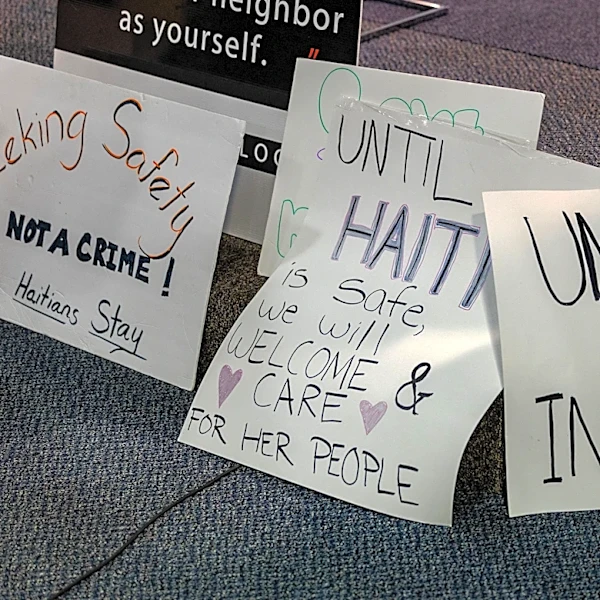 neighbor
as yourself.
”
LO
eking Safety
NOT A CRIME!
Haitians Stay
UNTIL
HAITI
is safe,
we will
WELCOME &
CARE
FOR HER PEOPLE
IN